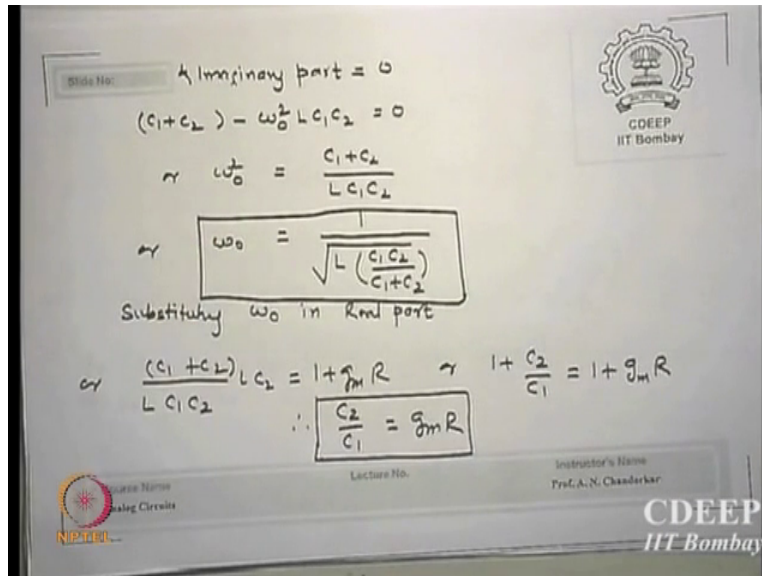 Slide No:
& Imaginary part = 0
(C1+C2) - ω0² L C1 C2 = 0
or ω0² = (C1+C2) / (L C1 C2)
or ω0 = 1 / √(L (C1 C2 / (C1+C2)))
Substituting ω0 in Real part
or ((C1+C2) / (L C1 C2)) L C2 = 1+gmR or 1 + C2/C1 = 1+gmR
∴ C2/C1 = gmR
CDEEP
IIT Bombay
Course Name
Analog Circuits
Lecture No.
Instructor's Name
Prof. A. N. Chandorkar
NPTEL
CDEEP
IIT Bombay